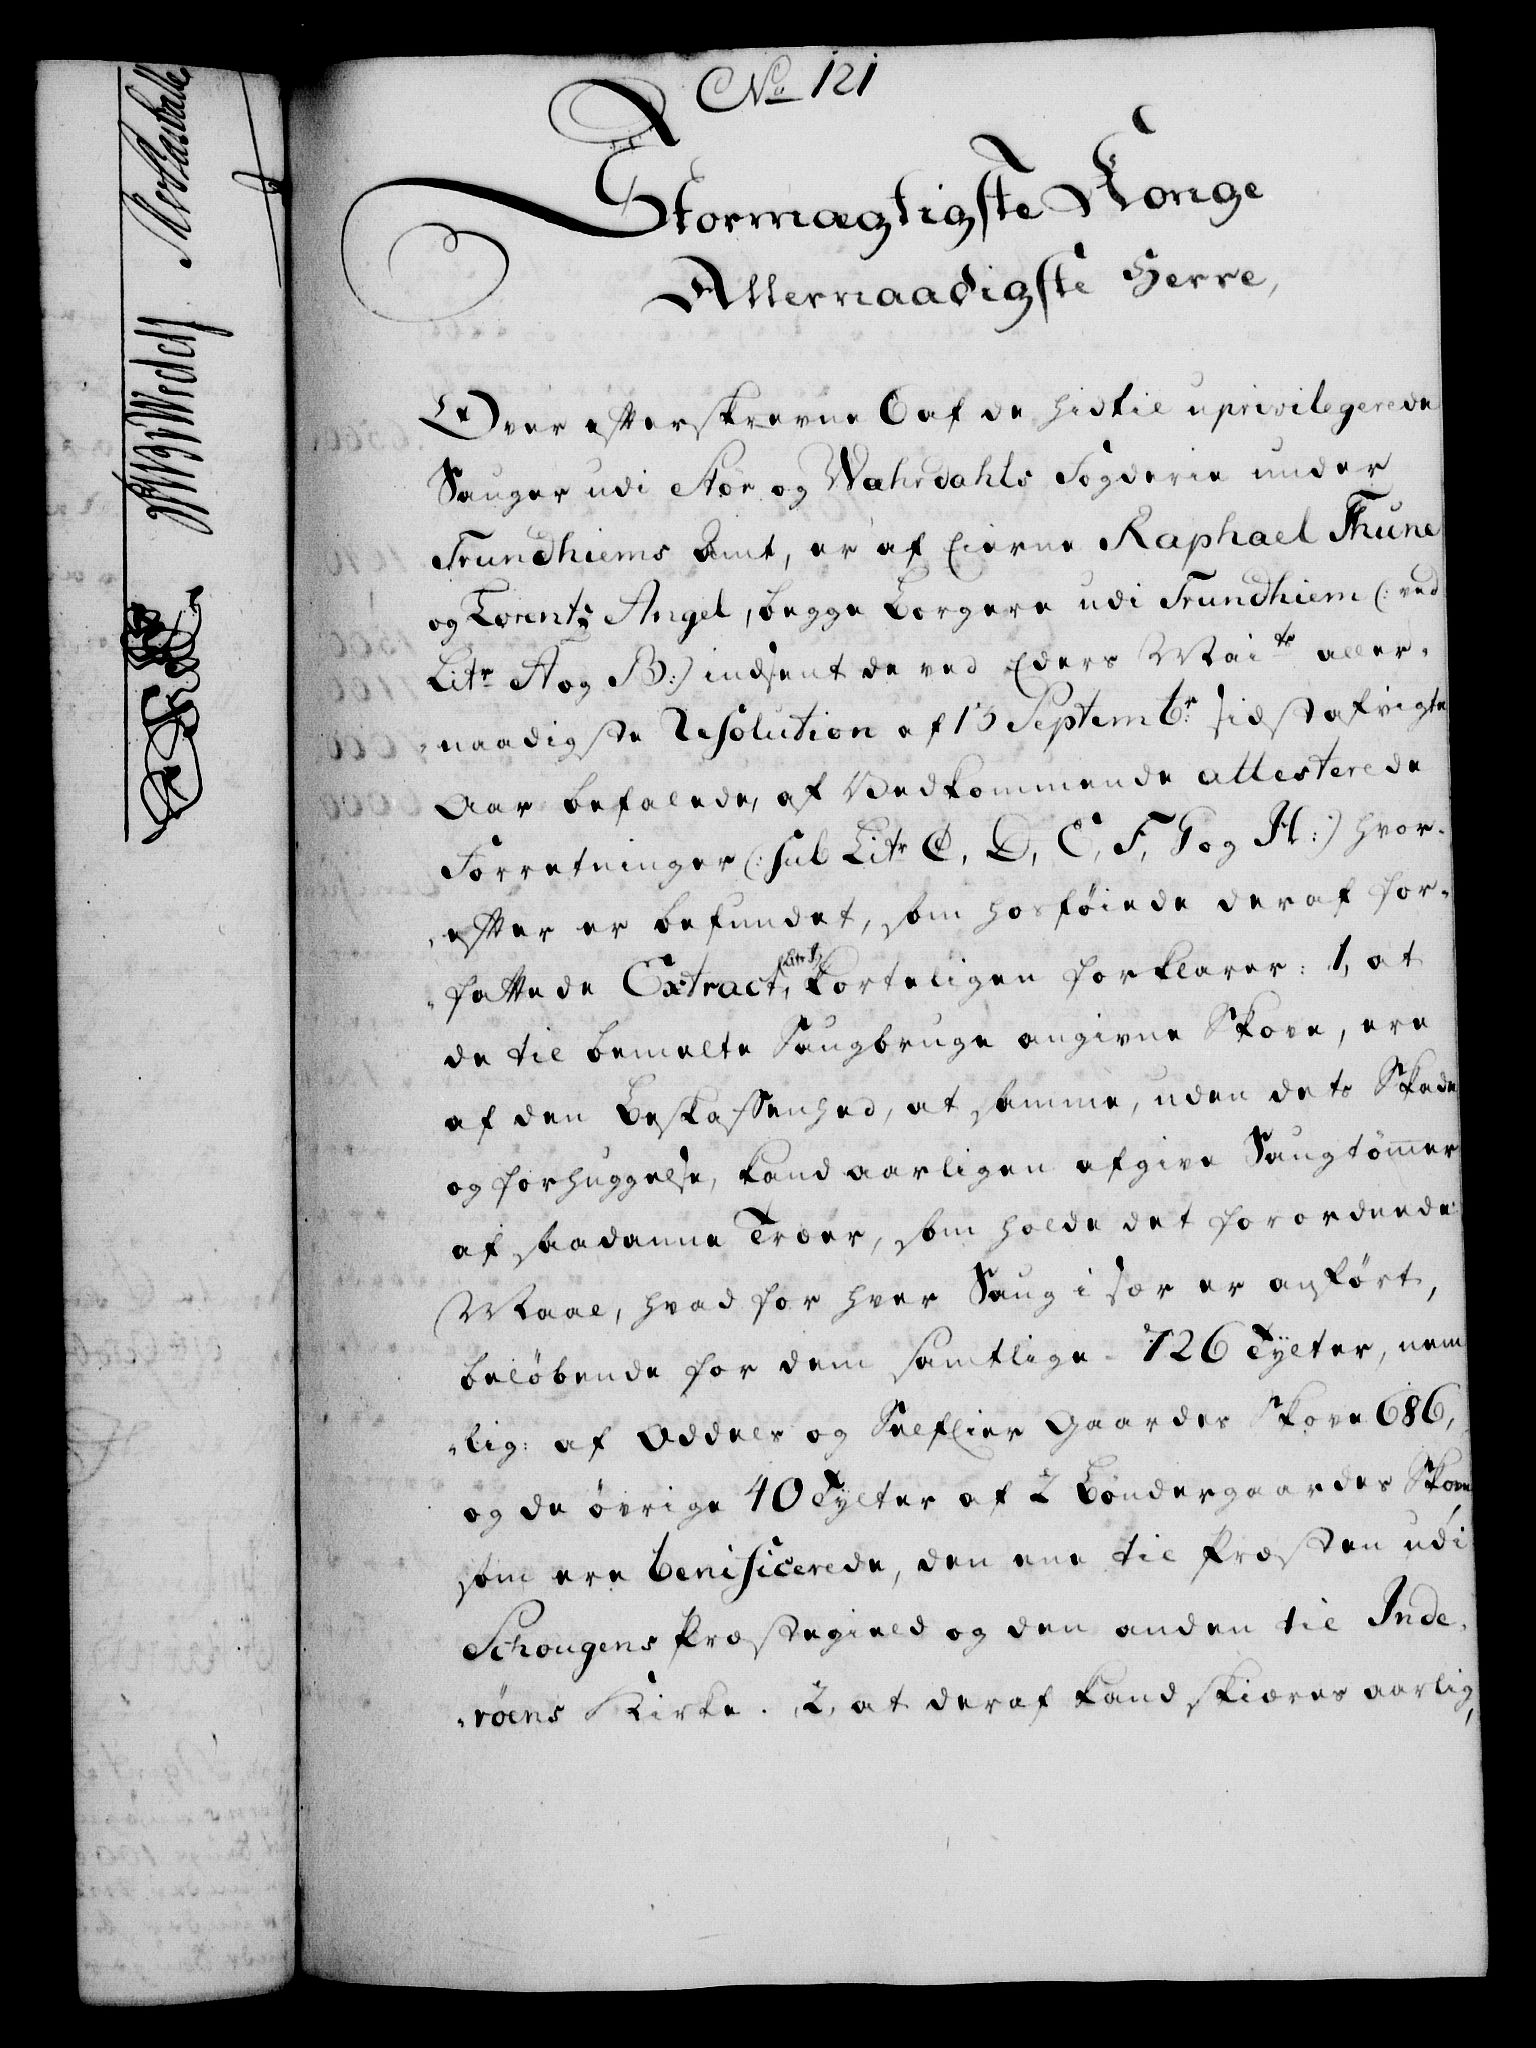 No 121
Stormægtigste Konge
Allernaadigste Herre,
Over efterskrevne 6 af de hidtil uprivilegerede
Sauger udi Stør og Wæhrdahls Fogderie under
Trundhiems Amt, er af Eierne Raphael Thune
og Lorentz Angel, begge Borgere udi Trundhiem (: ved
Litr A og B:) indsent de ved Eders Mai:ts aller-
-naadigste Resolution af 13 Septembr: sidst afvigte
Aar befalede, af Vedkommende attesterede
Forretninger (: sub Litr C, D, E, F, G og H:) hvor-
-efter er befundet, som hosføiede deraf for-
-fattede Extract, Litr J, korteligen forklarer: 1, at
de til bemelte Saugbruge angivne Skove, ere
af den Beskaffenhed, at samme, uden dets Skade
og forhuggelse, kand aarligen afgive Saugtømer
af saadanne Træer, som holde det forordnede
Maal, hvad for hver Saug i sær er anført,
beløbende for dem samtlige - 726 Tylter, nem
-lig: af Oddels og Selveier Gaarders Skove 686,
og de øvrige 40 Tylter af 2 Bøndergaarders Skove
som ere benificerede, den ene til Præsten udi
Schougens Præstegield og den anden til Inde-
-røens Kirke. 2, at deraf kand skiæres aarlig,